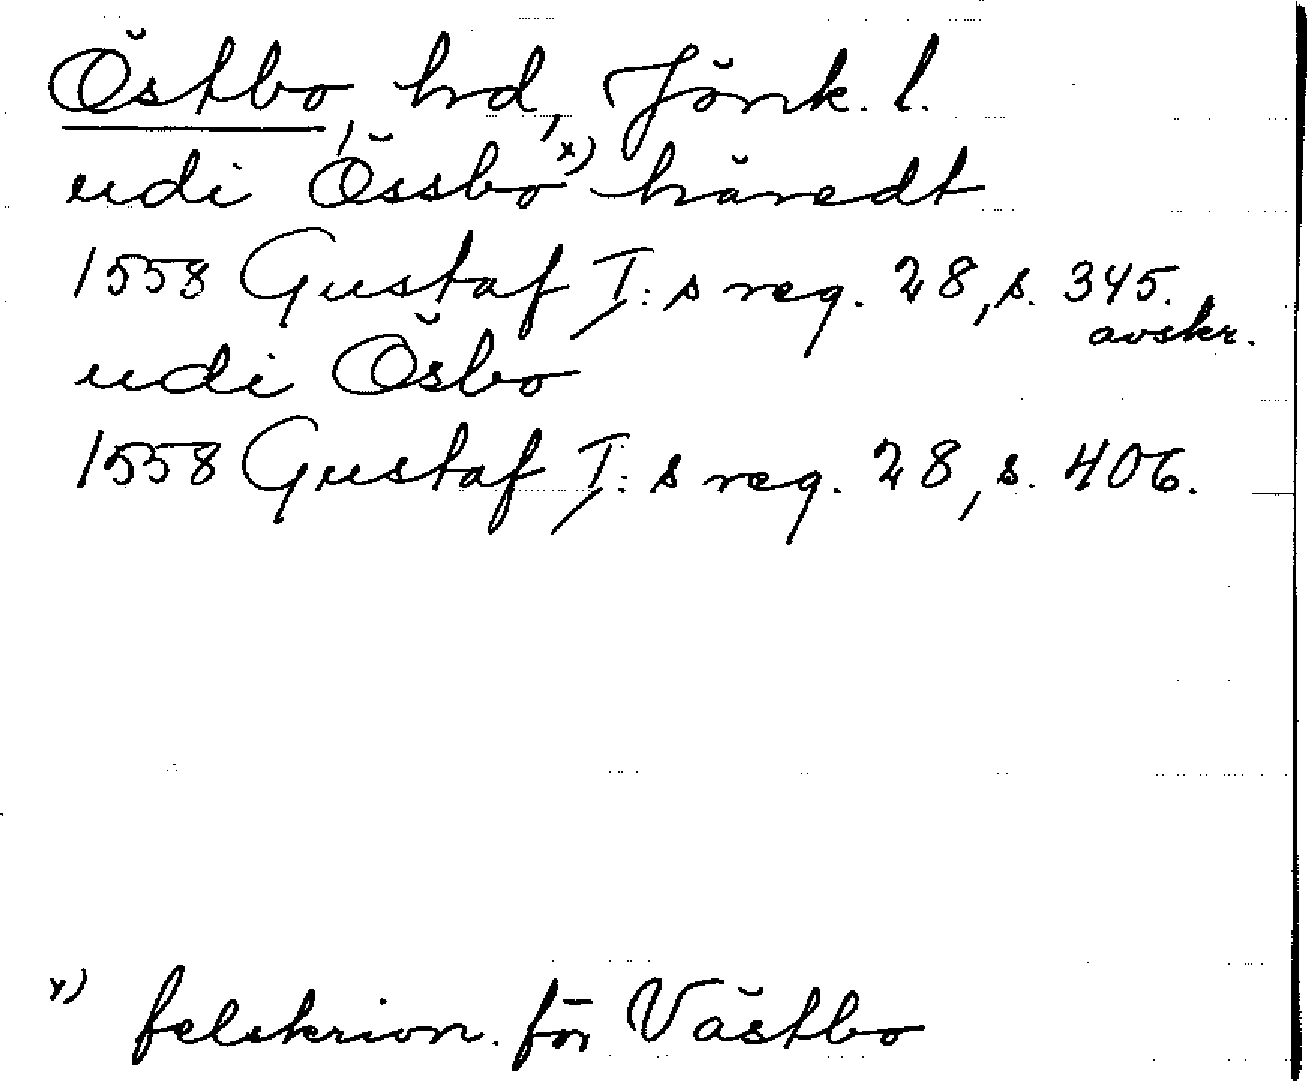 Östbo, hrd, Jönk. l.
udi Össbo x) häredt
1558 Gustaf I:s reg. 28, s. 345.
avskr.
udi Ösbo
1558 Gustaf I:s reg. 28, s. 406.
x) felskrivn. för Västbo